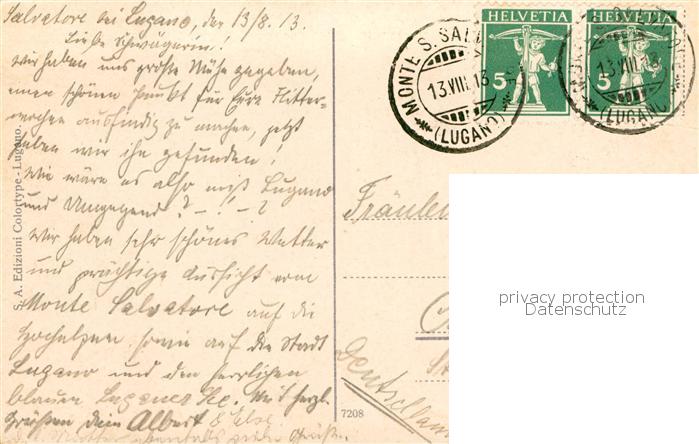 Salvatore bei Lugano, den 13/8. 13.
Liebe Schwägerin!
Wir haben uns große Mühe gegeben,
einen schönen Punkt für Eure Flitter-
wochen ausfindig zu machen, jetzt
haben wir ihn gefunden!
Wie wäre es also mit Lugano
und Umgegend? - ! - ?
Wir haben sehr schönes Wetter
und prächtige Aussicht vom
Monte Salvatore auf die
Hochalpen sowie auf die Stadt
Lugano und den herrlichen
blauen Luganer See. Mit herzl.
Grüßen Dein Albert & Else
ebenfalls
S. A. Edizioni Colortype - Lugano.
7208
HELVETIA
5
HELVETIA
5
MONTE S. SAL
13.VIII.13
(LUGANO)
13.VIII.13
(LUGANO
Fräulein
Deutschland
privacy protection
Datenschutz